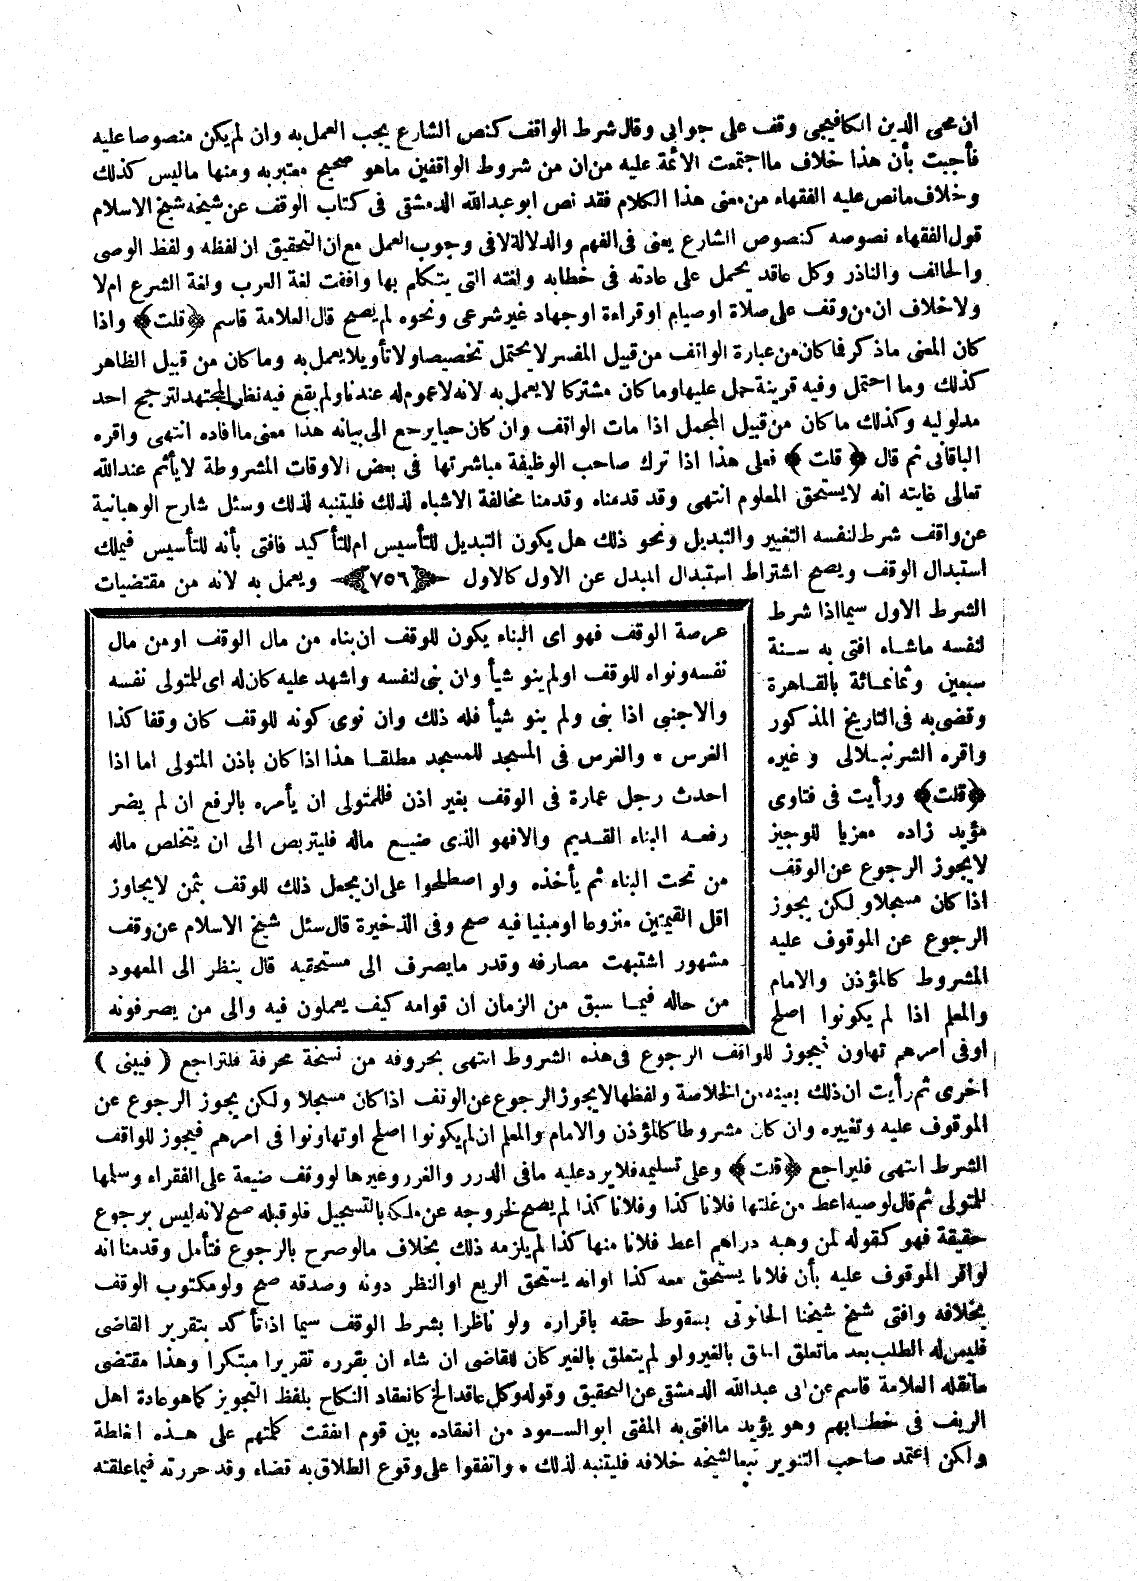 ان محى الدين الكافيجى وقف على جوابى وقال شرط الواقف كنص الشارع يجب العمل به وان لم يكن منصوصا عليه
فأجبت بأن هذا خلاف ما اجتمعت الائمة عليه من ان من شروط الواقفين ماهو صحيح معتبر به ومنها ماليس كذلك
وخلاف مانص عليه الفقهاء من معنى هذا الكلام فقد نص ابو عبدالله الدمشقى فى كتاب الوقف عن شيخه شيخ الاسلام
قول الفقهاء نصوصه كنصوص الشارع يعنى فى الفهم والدلالة لا فى وجوب العمل مع ان التحقيق ان لفظه ولفظ الوصى
والحالف والناذر وكل عاقد يحمل على عادته فى خطابه ولغته التى يتكلم بها وافقت لغة العرب ولغة الشرع ام لا
ولا خلاف ان من وقف على صلاة او صيام او قراءة او جهاد غير شرعى ونحوه لم يصح قال العلامة قاسم ﴿قلت﴾ واذا
كان المعنى ماذكر فما كان من عبارة الواقف من قبيل المفسر لا يحتمل تخصيصا ولا تأويلا يعمل به وما كان من قبيل الظاهر
كذلك وما احتمل وفيه قرينة حمل عليها وما كان مشتركا لا يعمل به لانه لا عموم له عندنا ولم يقع فيه نظر المجتهد لترجح احد
مدلوليه وكذلك ما كان من قبيل المجمل اذا مات الواقف وان كان حيا يرجع الى بيانه هذا معنى ما افاده انتهى واقره
الباقانى ثم قال ﴿قلت﴾ فعلى هذا اذا ترك صاحب الوظيفة مباشرتها فى بعض الاوقات المشروطة لا يأثم عندالله
تعالى غايته انه لا يستحق المعلوم انتهى وقد قدمناه وقدمنا مخالفة الاشباه لذلك فليتنبه لذلك وسئل شارح الوهبانية
عن واقف شرط لنفسه التغيير والتبديل ونحو ذلك هل يكون التبديل للتأسيس ام للتأكيد فافتى بأنه للتأسيس فيملك
استبدال الوقف ويصح اشتراط استبدال المبدل عن الاول كالاول ﴿٧٥٦﴾ ويعمل به لانه من مقتضيات
الشرط الاول سيما اذا شرط
لنفسه ماشاء افتى به سنة
سبعين وثمانمائة بالقاهرة
وقضى به فى التاريخ المذكور
واقره الشرنبلالى وغيره
﴿قلت﴾ ورأيت فى فتاوى
مؤيد زاده معزيا للوجيز
لا يجوز الرجوع عن الوقف
اذا كان مسجلا ولكن يجوز
الرجوع عن الموقوف عليه
المشروط كالمؤذن والامام
والمعلم اذا لم يكونوا اصلح
عرصة الوقف فهو اى البناء يكون للوقف ان بناه من مال الوقف او من مال
نفسه ونواه للوقف اولم ينو شيأ وان بنى لنفسه واشهد عليه كان له اى للمتولى نفسه
والاجنبى اذا بنى ولم ينو شيأ فله ذلك وان نوى كونه للوقف كان وقفا كذا
الغرس * والغرس فى المسجد للمسجد مطلقا هذا اذا كان باذن المتولى اما اذا
احدث رجل عمارة فى الوقف بغير اذن فللمتولى ان يأمره بالرفع ان لم يضر
رفعه البناء القديم والافهو الذى ضيع ماله فليتربص الى ان يتخلص ماله
من تحت البناء ثم يأخذه ولو اصطلحوا على ان يجعل ذلك للوقف بثمن لايجاوز
اقل القيمتين منزوعا او مبنيا فيه صح وفى الذخيرة قال سئل شيخ الاسلام عن وقف
مشهور اشتبهت مصارفه وقدر مايصرف الى مستحقيه قال ينظر الى المعهود
من حاله فيما سبق من الزمان ان قوامه كيف يعملون فيه والى من يصرفونه
اوفى امرهم تهاون فيجوز للواقف الرجوع فى هذه الشروط انتهى بحروفه من نسخة محرفة فلتراجع (فيبنى)
اخرى ثم رأيت ان ذلك بعينه من الخلاصة ولفظها لايجوز الرجوع عن الوقف اذا كان مسجلا ولكن يجوز الرجوع عن
الموقوف عليه وتغييره وان كان مشروطا كالمؤذن والامام والمعلم ان لم يكونوا اصلح او تهاونوا فى امرهم فيجوز للواقف
الشرط انتهى فليراجع ﴿قلت﴾ وعلى تسليمه فلا يرد عليه مافى الدرر والغرر وغيرها لو وقف ضيعة على الفقراء وسلمها
للمتولى ثم قال لوصيه اعط من غلتها فلانا كذا وفلانا كذا لم يصح لخروجه عن ملكه بالتسجيل فلو قبله صح لانه ليس برجوع
حقيقة فهو كقوله لمن وهبه دراهم اعط فلانا منها كذا لم يلزمه ذلك بخلاف مالو صرح بالرجوع فتأمل وقدمنا انه
لواقر الموقوف عليه بأن فلانا يستحق معه كذا اوانه يستحق الريع اوالنظر دونه وصدقه صح ولو مكتوب الوقف
بخلافه وافتى شيخ شيخنا الحانوتى بسقوط حقه باقراره ولو ناظرا بشرط الوقف سيما اذا تأكد بتقرير القاضى
فليس له الطلب بعد ماتعلق الحاق بالغير ولو لم يتعلق بالغير كان للقاضى ان شاء ان يقرره تقريرا مبتكرا وهذا مقتضى
مانقله العلامة قاسم عن ابى عبدالله الدمشقى عن التحقيق وقوله وكل عاقد الخ كانعقاد النكاح بلفظ التجويز كما هو عادة اهل
الريف فى خطابهم وهو يؤيد ما افتى به المفتى ابو السعود من انعقاده بين قوم اتفقت كلمتهم على هذه الغلطة
ولكن اعتمد صاحب التنوير تبعا لشيخه خلافه فليتنبه لذلك * واتفقوا على وقوع الطلاق به قضاء وقد حررته فيما علقته